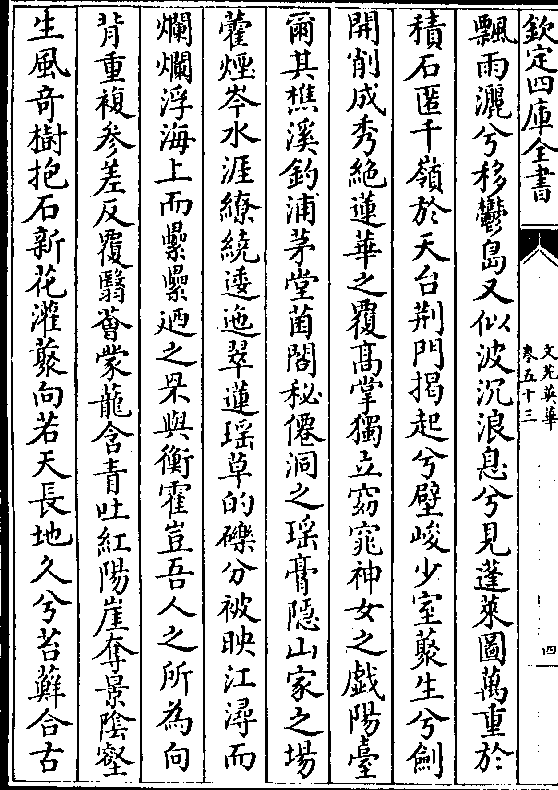 欽定四庫全書
文苑英華
卷五十三
四
飄雨灑兮移鬱島又似波沉浪息兮見蓬萊圖萬重於
積石匿千嶺於天台荆門揭起兮壁峻少室叢生兮劍
開削成秀絶蓮華之覆高掌獨立窈窕神女之戯陽臺
爾其樵溪釣浦茅堂菌閣秘僊洞之瑶膏隠山家之場
藿煙岑水涯繚繞逶迤翠蓮瑶草的礫分被映江潯而
爛爛浮海上而纍纍迺之罘與衡霍豈吾人之所為向
背重複參差反覆翳薈蒙龍含青吐紅陽崖奪景陰壑
生風奇樹抱石新花灌叢向若天長地久兮苔蘚合古